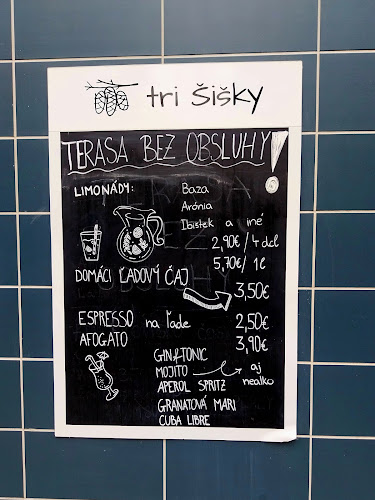 tri Šišky
TERASA BEZ OBSLUHY!
LIMONÁDY: Baza
Arónia
Ibištek a iné
2,90€ / 4 dcl
5,70€ / 1l
DOMÁCI ĽADOVÝ ČAJ
3,50€
ESPRESSO na ľade 2,50€
AFOGATO 3,90€
GIN & TONIC
MOJITO aj
APEROL SPRITZ nealko
GRANATOVÁ MARI
CUBA LIBRE